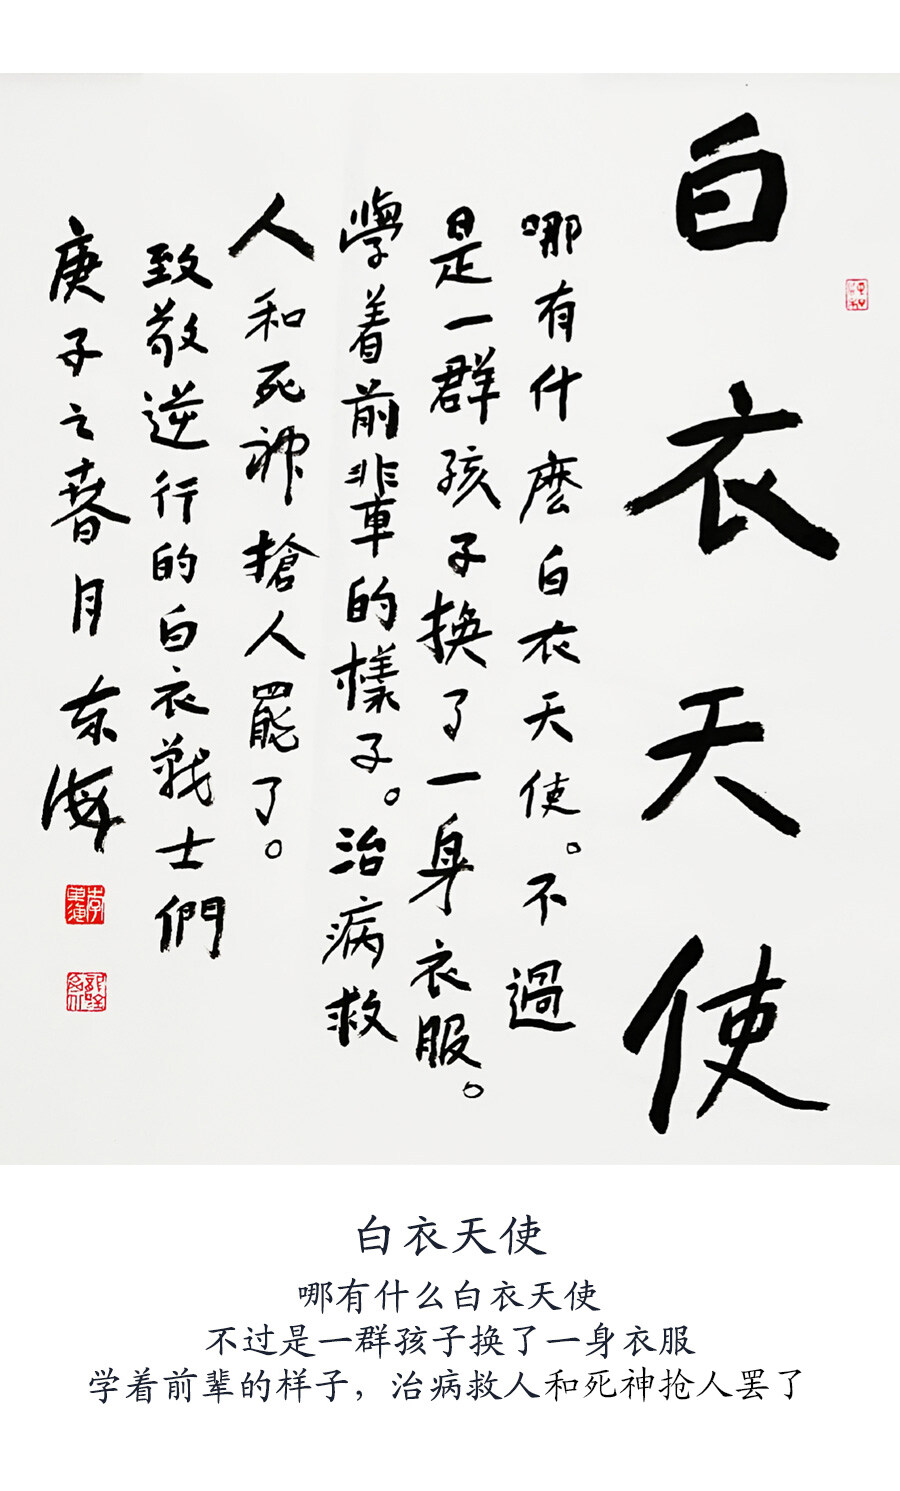 白衣天使
哪有什麽白衣天使。不過
是一群孩子換了一身衣服。
學着前輩的樣子。治病救
人和死神搶人罷了。
致敬逆行的白衣戰士們
庚子之春月 东海
白衣天使
哪有什么白衣天使
不过是一群孩子换了一身衣服
学着前辈的样子，治病救人和死神抢人罢了